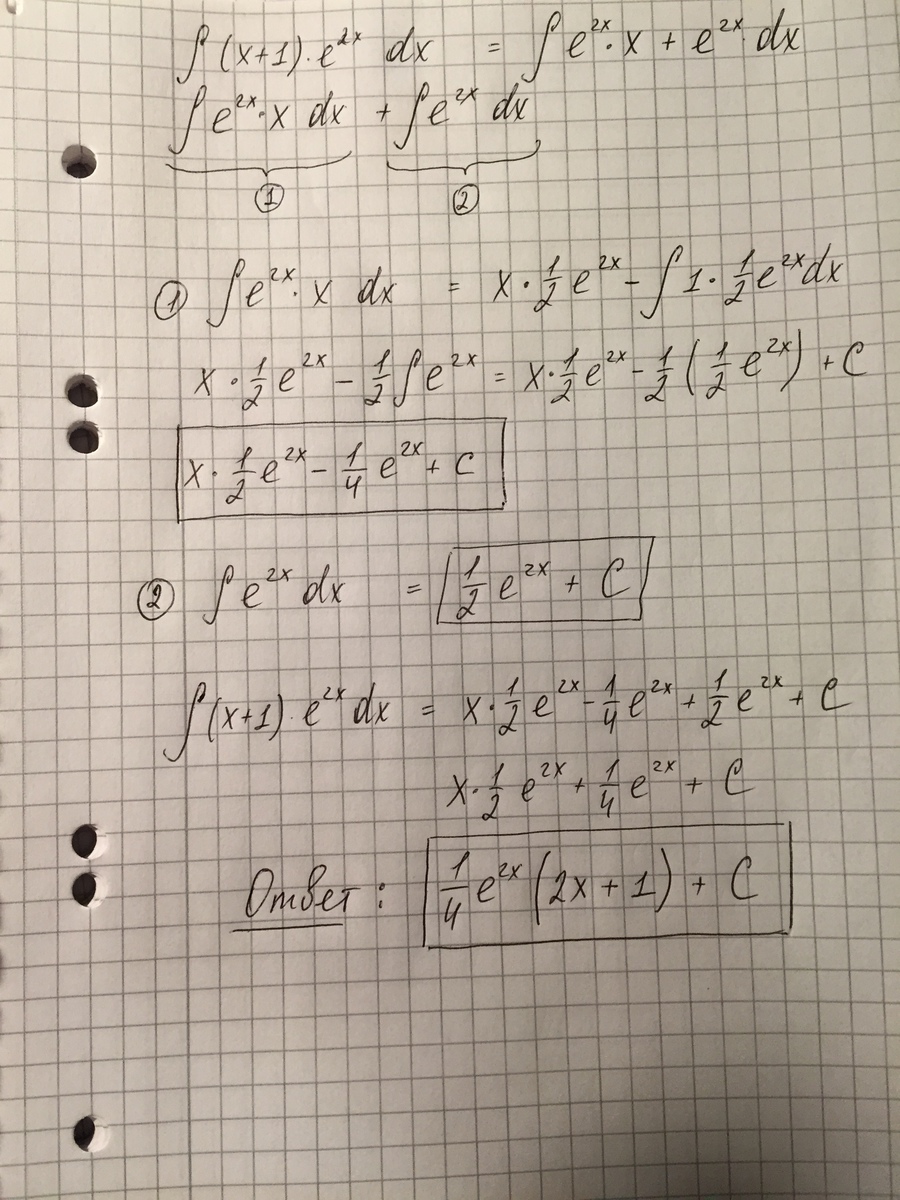 ∫(x+1)·e^{2x} dx = ∫e^{2x}·x + e^{2x} dx
∫e^{2x}·x dx + ∫e^{2x} dx
① ②
① ∫e^{2x}·x dx = x·1/2 e^{2x} - ∫1·1/2 e^{2x} dx
x·1/2 e^{2x} - 1/2 ∫e^{2x} = x·1/2 e^{2x} - 1/2 (1/2 e^{2x}) + C
x·1/2 e^{2x} - 1/4 e^{2x} + C
② ∫e^{2x} dx = 1/2 e^{2x} + C
∫(x+1)·e^{2x} dx = x·1/2 e^{2x} - 1/4 e^{2x} + 1/2 e^{2x} + C
x·1/2 e^{2x} + 1/4 e^{2x} + C
Ответ: 1/4 e^{2x} (2x+1) + C